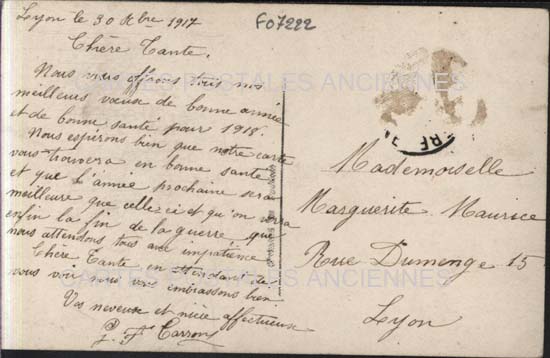 Lyon le 30 Xbre 1917
F07222
Chère Tante,
Nous vous offrons tous nos
meilleurs vœuse de bonne année
et de bonne santé pour 1918.
Nous espérons bien que notre carte
vous trouvera en bonne santé
et que l'année prochaine sera
meilleure que celle-ci et qu'on verra
enfin la fin de la guerre que
nous attendons tous avec impatience
Chère Tante en attendant de
vous voir nous vous embrassons bien
Vos neveuse et nièce affectueuse
Carron
Mademoiselle
Marguerite Maurice
Rue Dumenge 15
Lyon
CARTES POSTALES ANCIENNES
CARTES POSTALES ANCIENNES